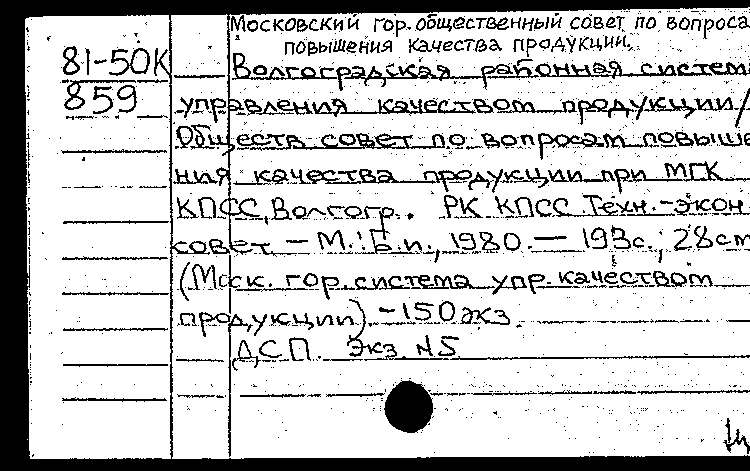 Московский гор. общественный совет по вопроса
повышения качества продукции.
81-50К
859
Волгоградская районная систем
управления качеством продукции/
Обществ совет по вопросам повыше
ния качества продукции при МГК
КПСС, Волгогр. РК КПСС. Техн.-экон
совет — М.: Б.и., 1980. — 193с.; 28см
(Моск. гор. система упр. качеством
продукции) -150экз.
ДСП. Экз. №5